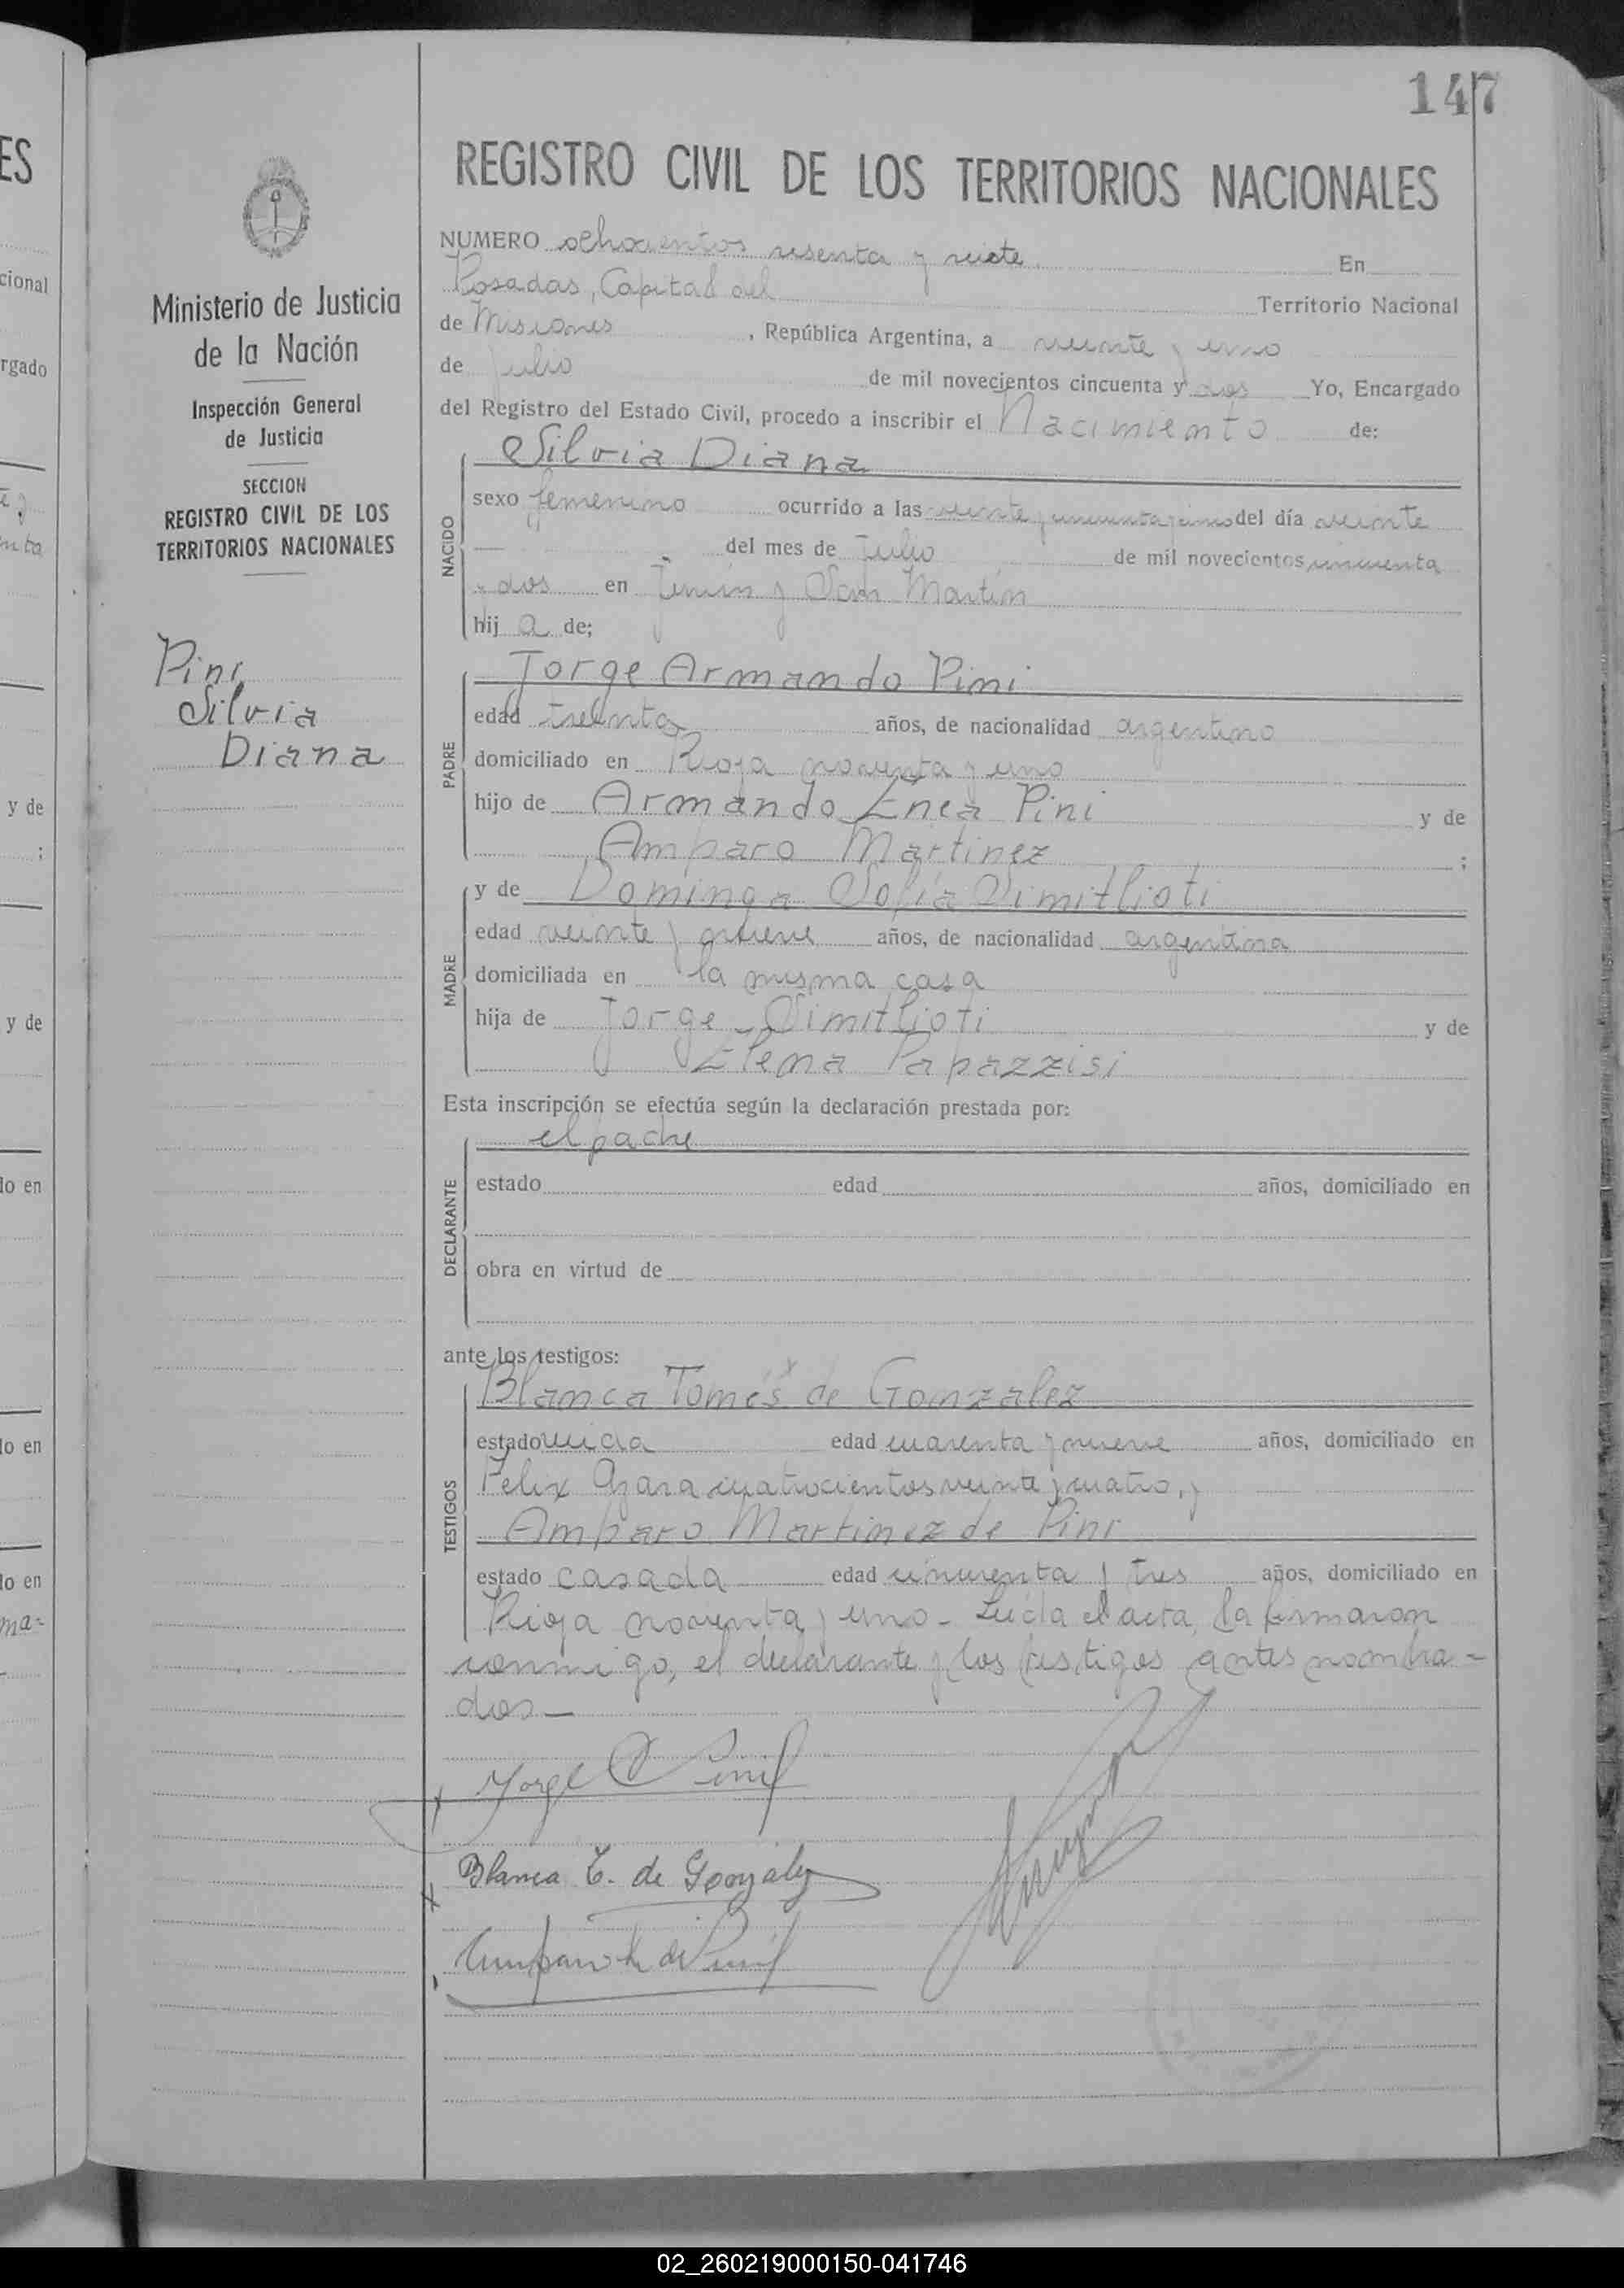 147
REGISTRO CIVIL DE LOS TERRITORIOS NACIONALES
NUMERO ochocientos sesenta y siete En
Posadas, Capital del Territorio Nacional
de Misiones, República Argentina, a veinte y uno
de Julio de mil novecientos cincuenta y dos Yo, Encargado
del Registro del Estado Civil, procedo a inscribir el Nacimiento de:
NACIDO
Silvia Diana
sexo femenino ocurrido a las veinte y cincuenta y cinco del día veinte
— del mes de Julio de mil novecientos cincuenta
y dos en Junín y San Martín
hij a de;
PADRE
Jorge Armando Pini
edad treinta años, de nacionalidad argentino
domiciliado en Rioja noventa y uno
hijo de Armando Enea Pini y de
Amparo Martinez ;
MADRE
y de Dominga Sofía Dimitlioti
edad veinte y nueve años, de nacionalidad argentina
domiciliada en la misma casa
hija de Jorge Dimitlioti y de
Elena Papazzisi
Esta inscripción se efectúa según la declaración prestada por:
DECLARANTE
el padre
estado edad años, domiciliado en
obra en virtud de
ante los testigos:
TESTIGOS
Blanca Tomés de Gonzalez
estado viuda edad cuarenta y nueve años, domiciliado en
Felix Azara cuatrocientos veinte y cuatro, y
Amparo Martinez de Pini
estado casada edad cincuenta y tres años, domiciliado en
Rioja noventa y uno - Leída el acta, la firmaron
conmigo, el declarante y los testigos antes nombra-
dos—
Jorge A Pini
Blanca T. de González
Amparo M. de Pini
Ministerio de Justicia
de la Nación
Inspección General
de Justicia
SECCION
REGISTRO CIVIL DE LOS
TERRITORIOS NACIONALES
Pini
Silvia
Diana
ES
cional
rgado
y de
;
y de
do en
do en
do en
ma-
02_260219000150-041746